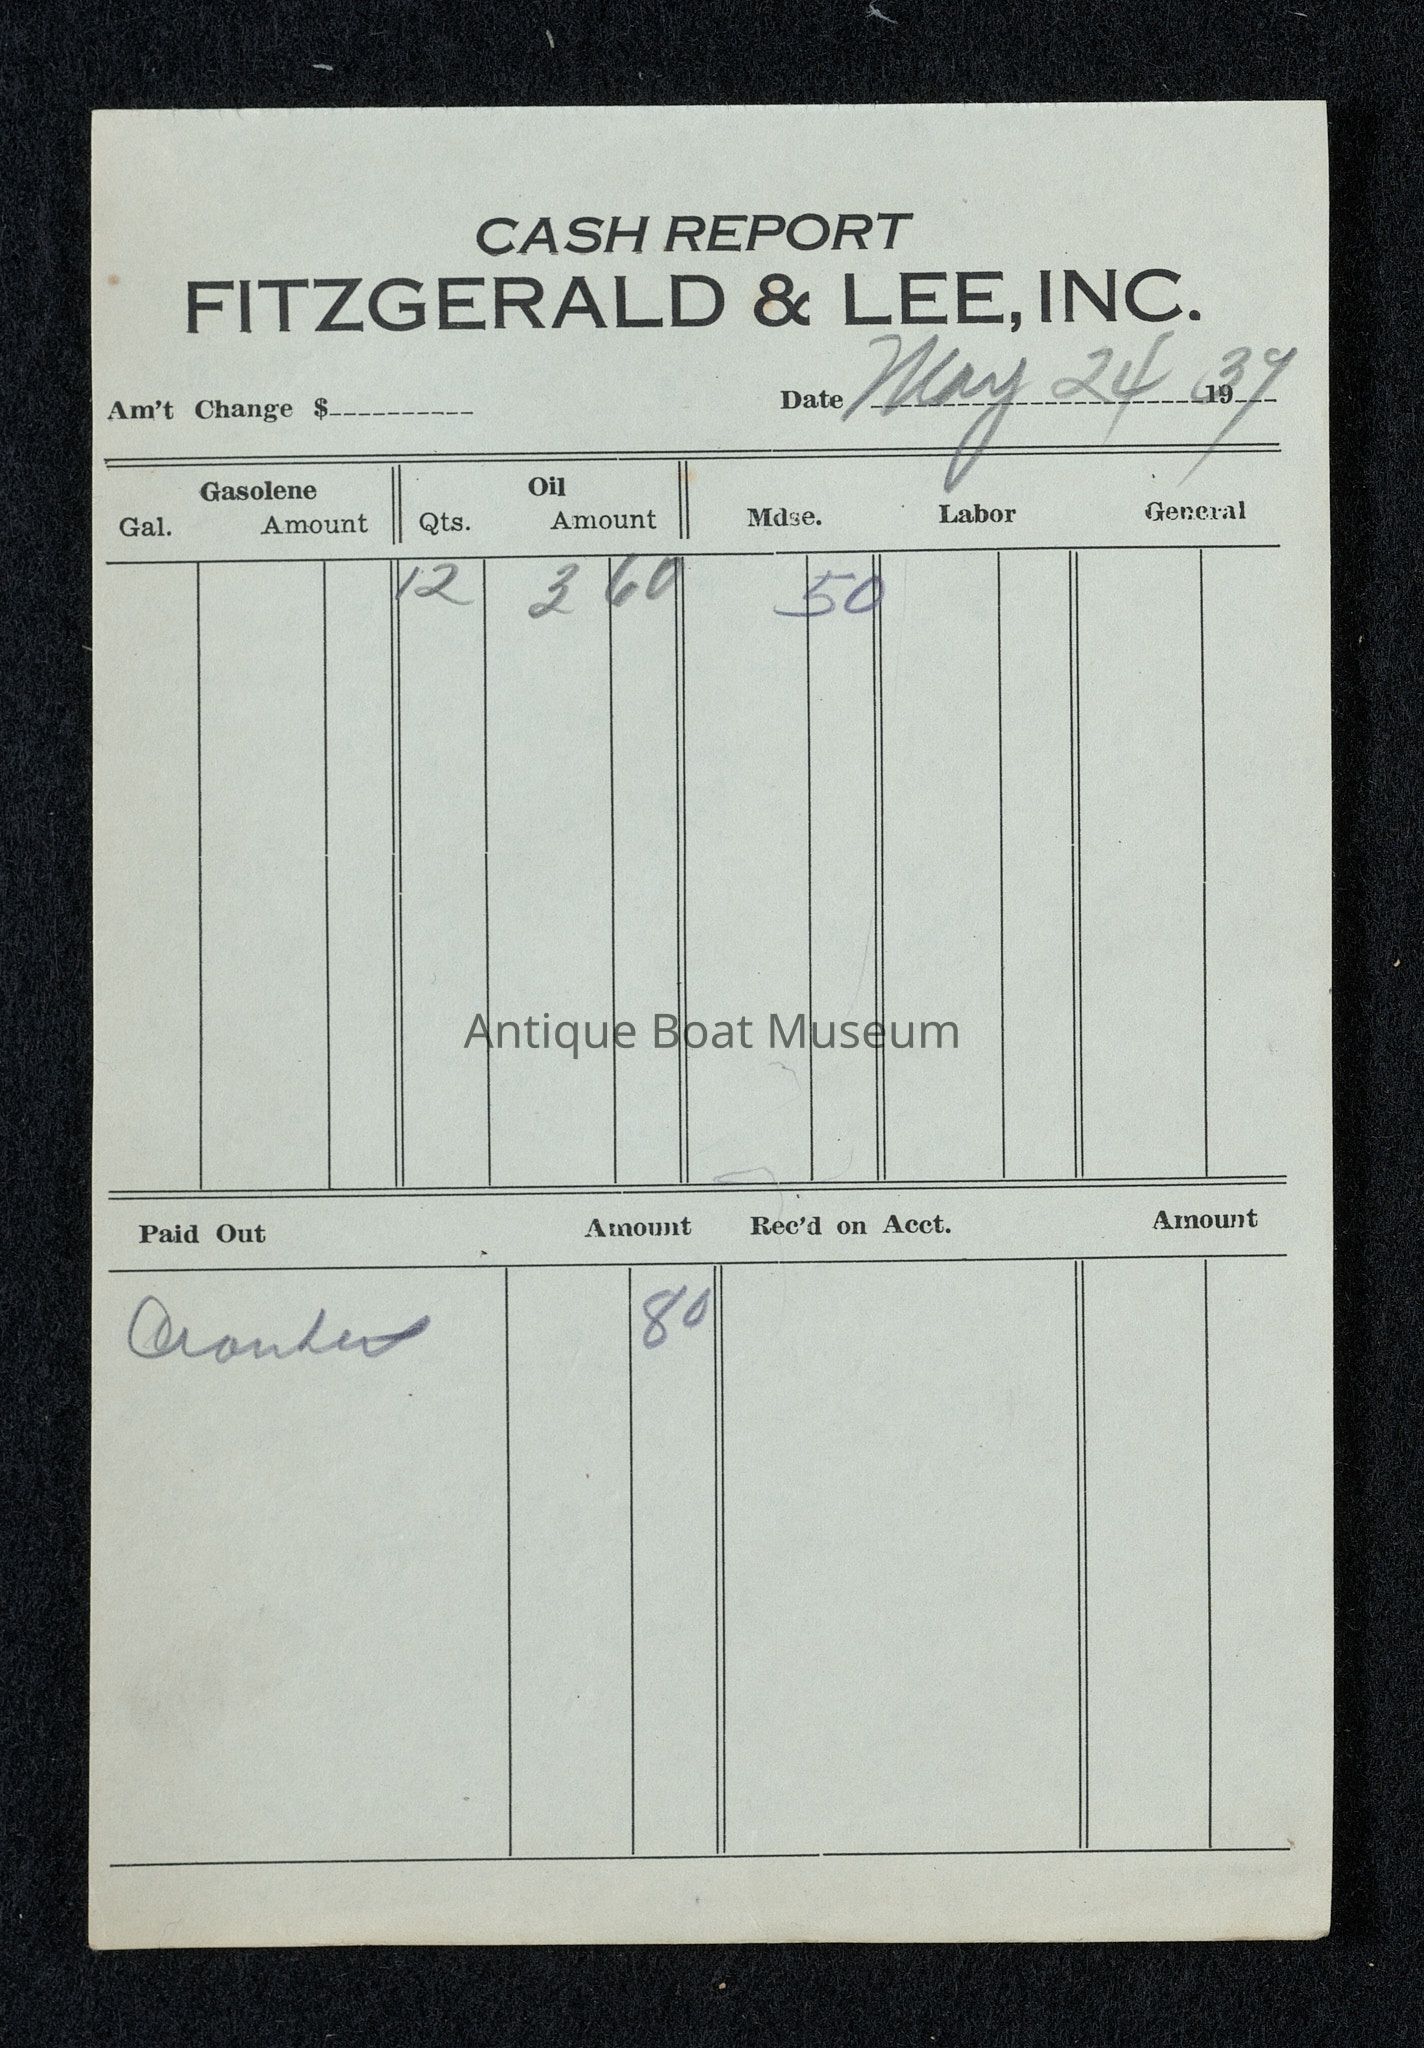 CASH REPORT
FITZGERALD & LEE, INC.
Am't Change $ Date May 24 1937
Gasolene Oil
Gal. Amount Qts. Amount Mdse. Labor General
12 3 60 50
Antique Boat Museum
Paid Out Amount Rec'd on Acct. Amount
80